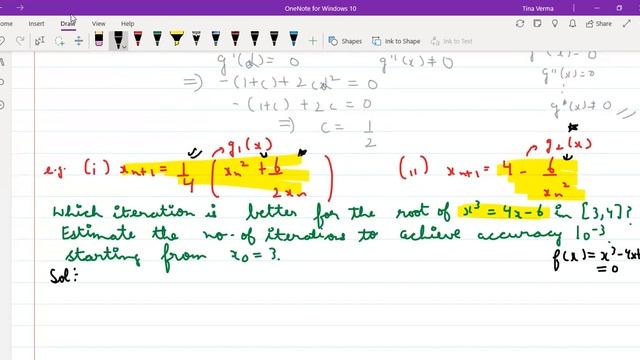 OneNote for Windows 10
Tina Verma
Home Insert Draw View Help
Shapes Ink to Shape Ink to Text
g'(α) = 0 g''(x) ≠ 0
g''(x) = 0
⇒ -(1+c) + 2cα² = 0
-(1+c) + 2c = 0
⇒ c = 1/2
e.g. (i) xₙ₊₁ = 1/4 (xₙ² + 6/2xₙ) → g₁(x) (ii) xₙ₊₁ = 4 - 6/xₙ² → g₂(x)
Which iteration is better for the root of x³ = 4x-6 in [3,4]?
Estimate the no. of iterations to achieve accuracy 10⁻³
starting from x₀ = 3.
f(x) = x³-4x+
= 0
Sol: